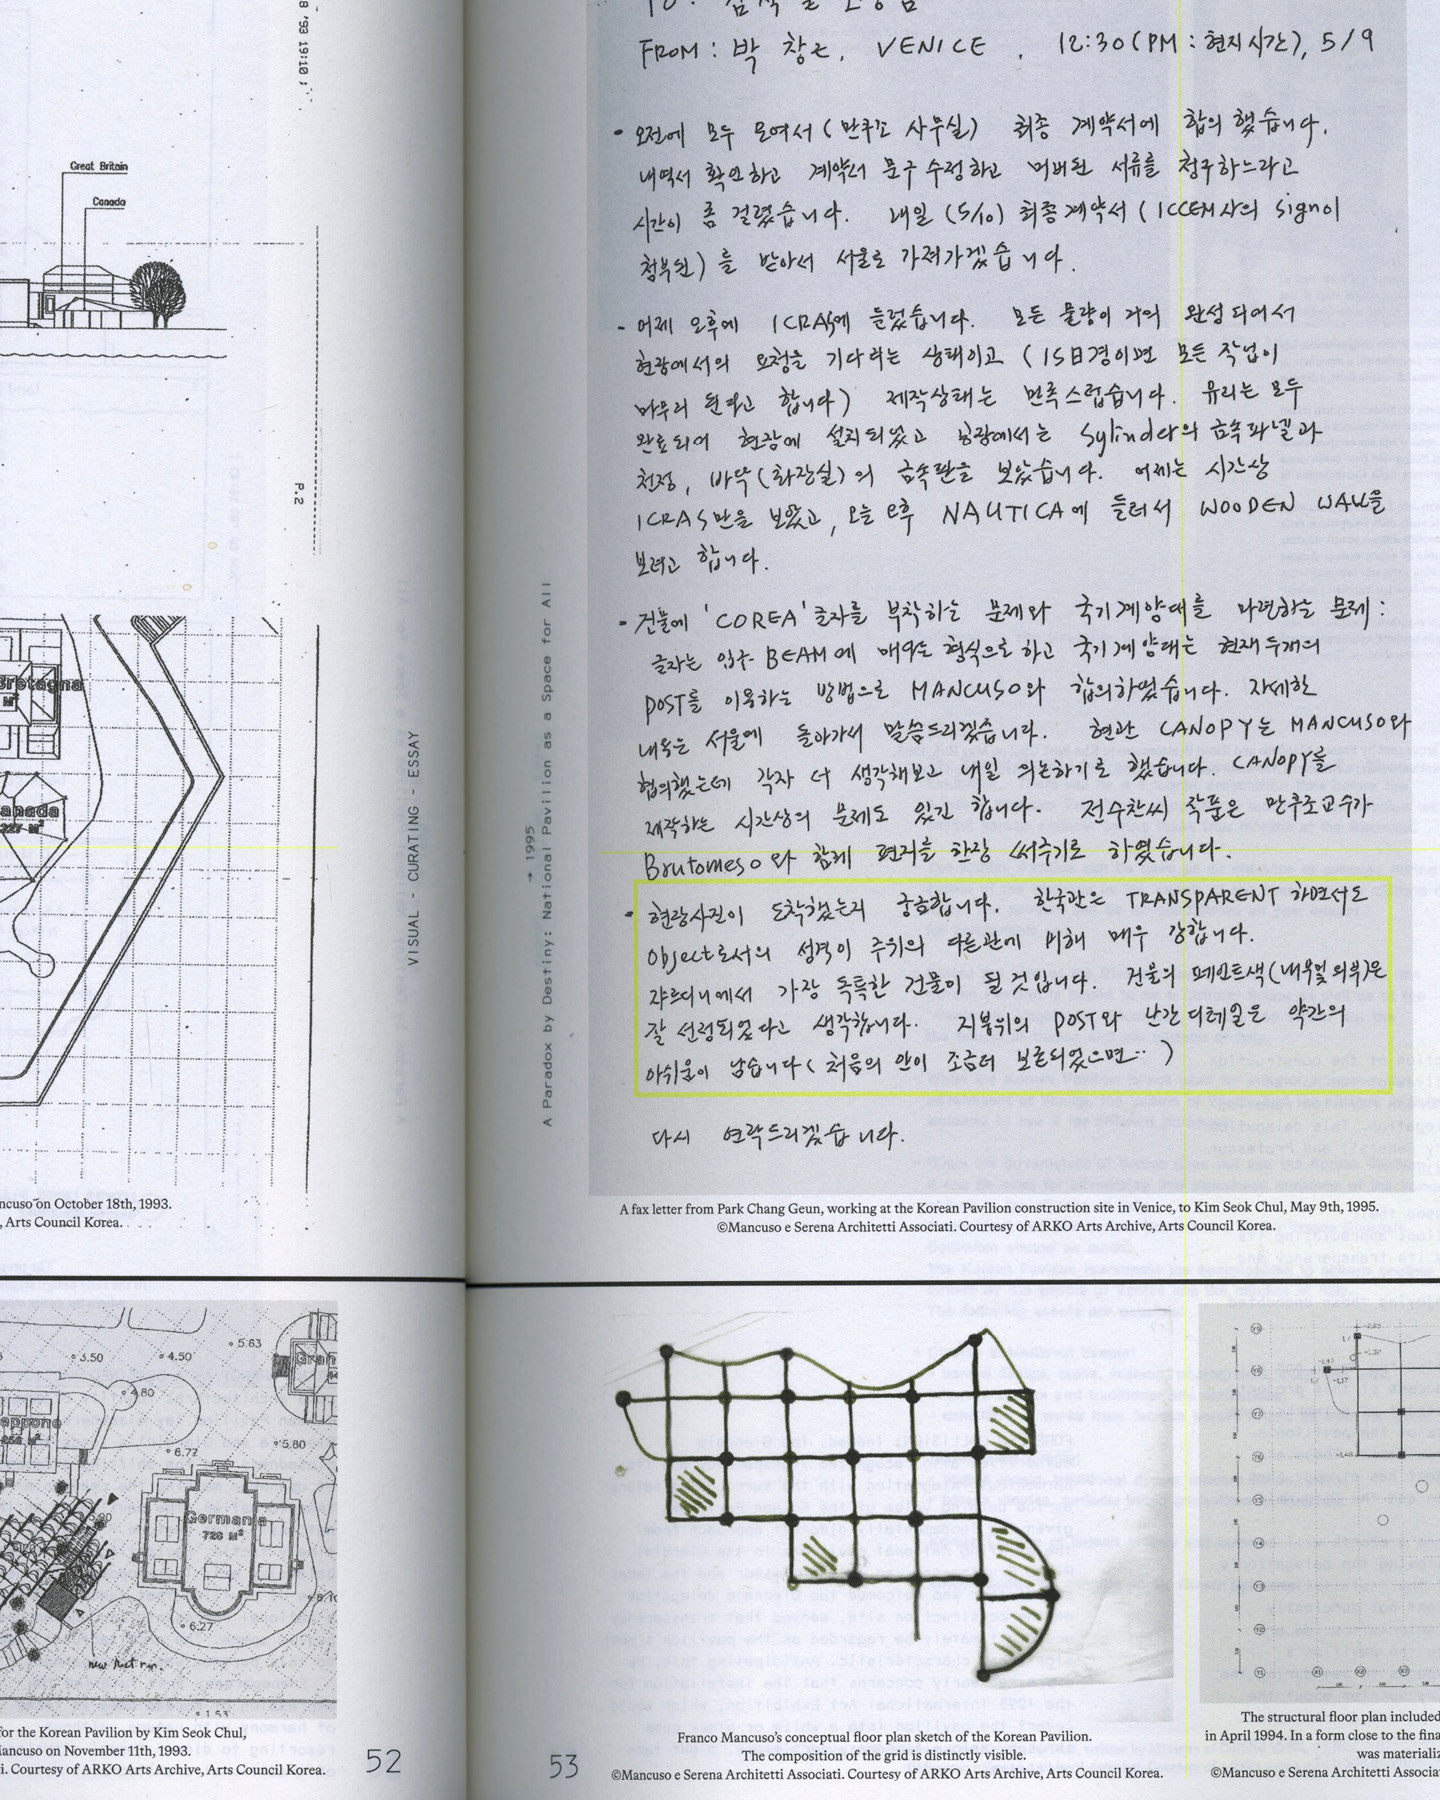 8 '93 19:10
Great Britain
Canada
P.2
Bretagna
M²
anada
VISUAL - CURATING - ESSAY
ncuso on October 18th, 1993.
, Arts Council Korea.
FROM: 박 창근, VENICE . 12:30(PM : 현지시간), 5/9
- 오전에 모두 모여서 (만쿠조 사무실) 최종 계약서에 합의 했습니다.
내역서 확인하고 계약서 문구 수정하고 서류를 청구하느라고
시간이 좀 걸렸습니다. 내일 (5/10) 최종계약서 (ICCEM사의 sign이
첨부된)를 받아서 서울로 가져가겠습니다.
- 어제 오후에 ICRAS에 들렀습니다. 모든 물량이 거의 완성되어서
현장에서의 요청을 기다리는 상태이고 (15日경이면 모든 작업이
마무리 된다고 합니다) 제작상태는 만족스럽습니다. 유리는 모두
완료되어 현장에 설치되었고 공장에서는 Sylinder의 금속파넬과
천정, 바닥(화장실)의 금속판을 보았습니다. 어제는 시간상
ICRAS만을 보았고, 오늘 오후 NAUTICA에 들러서 WOODEN WALL을
보려고 합니다.
- 건물에 'COREA' 글자를 부착하는 문제와 국기게양대를 마련하는 문제:
글자는 입구 BEAM에 매다는 형식으로 하고 국기게양대는 현재 두개의
POST를 이용하는 방법으로 MANCUSO와 합의하였습니다. 자세한
내용은 서울에 돌아가서 말씀드리겠습니다. 현관 CANOPY는 MANCUSO와
협의했는데 각자 더 생각해보고 내일 의논하기로 했습니다. CANOPY를
제작하는 시간상의 문제도 있긴 합니다. 전수천씨 작품은 만쿠조교수가
Brutomeso와 함께 편지를 한장 써주기로 하였습니다.
- 현장사진이 도착했는지 궁금합니다. 한국관은 TRANSPARENT 하면서도
Object로서의 성격이 주위의 다른관에 비해 매우 강합니다.
쟈르디니에서 가장 독특한 건물이 될 것입니다. 건물의 페인트색(내부및 외부)은
잘 선정되었다고 생각합니다. 지붕위의 POST와 난간디테일은 약간의
아쉬움이 남습니다 (처음의 안이 조금더 보존되었으면..)
다시 연락드리겠습니다.
→ 1995
A Paradox by Destiny: National Pavilion as a Space for All
A fax letter from Park Chang Geun, working at the Korean Pavilion construction site in Venice, to Kim Seok Chul, May 9th, 1995.
©Mancuso e Serena Architetti Associati. Courtesy of ARKO Arts Archive, Arts Council Korea.
5.63
3.50
4.50
4.80
Gran
appone
6.77
5.80
Germania
728 M²
6.27
1.53
for the Korean Pavilion by Kim Seok Chul,
Mancuso on November 11th, 1993.
i. Courtesy of ARKO Arts Archive, Arts Council Korea.
52
53
Franco Mancuso's conceptual floor plan sketch of the Korean Pavilion.
The composition of the grid is distinctly visible.
©Mancuso e Serena Architetti Associati. Courtesy of ARKO Arts Archive, Arts Council Korea.
The structural floor plan included
in April 1994. In a form close to the fina
was materializ
©Mancuso e Serena Architetti Associa